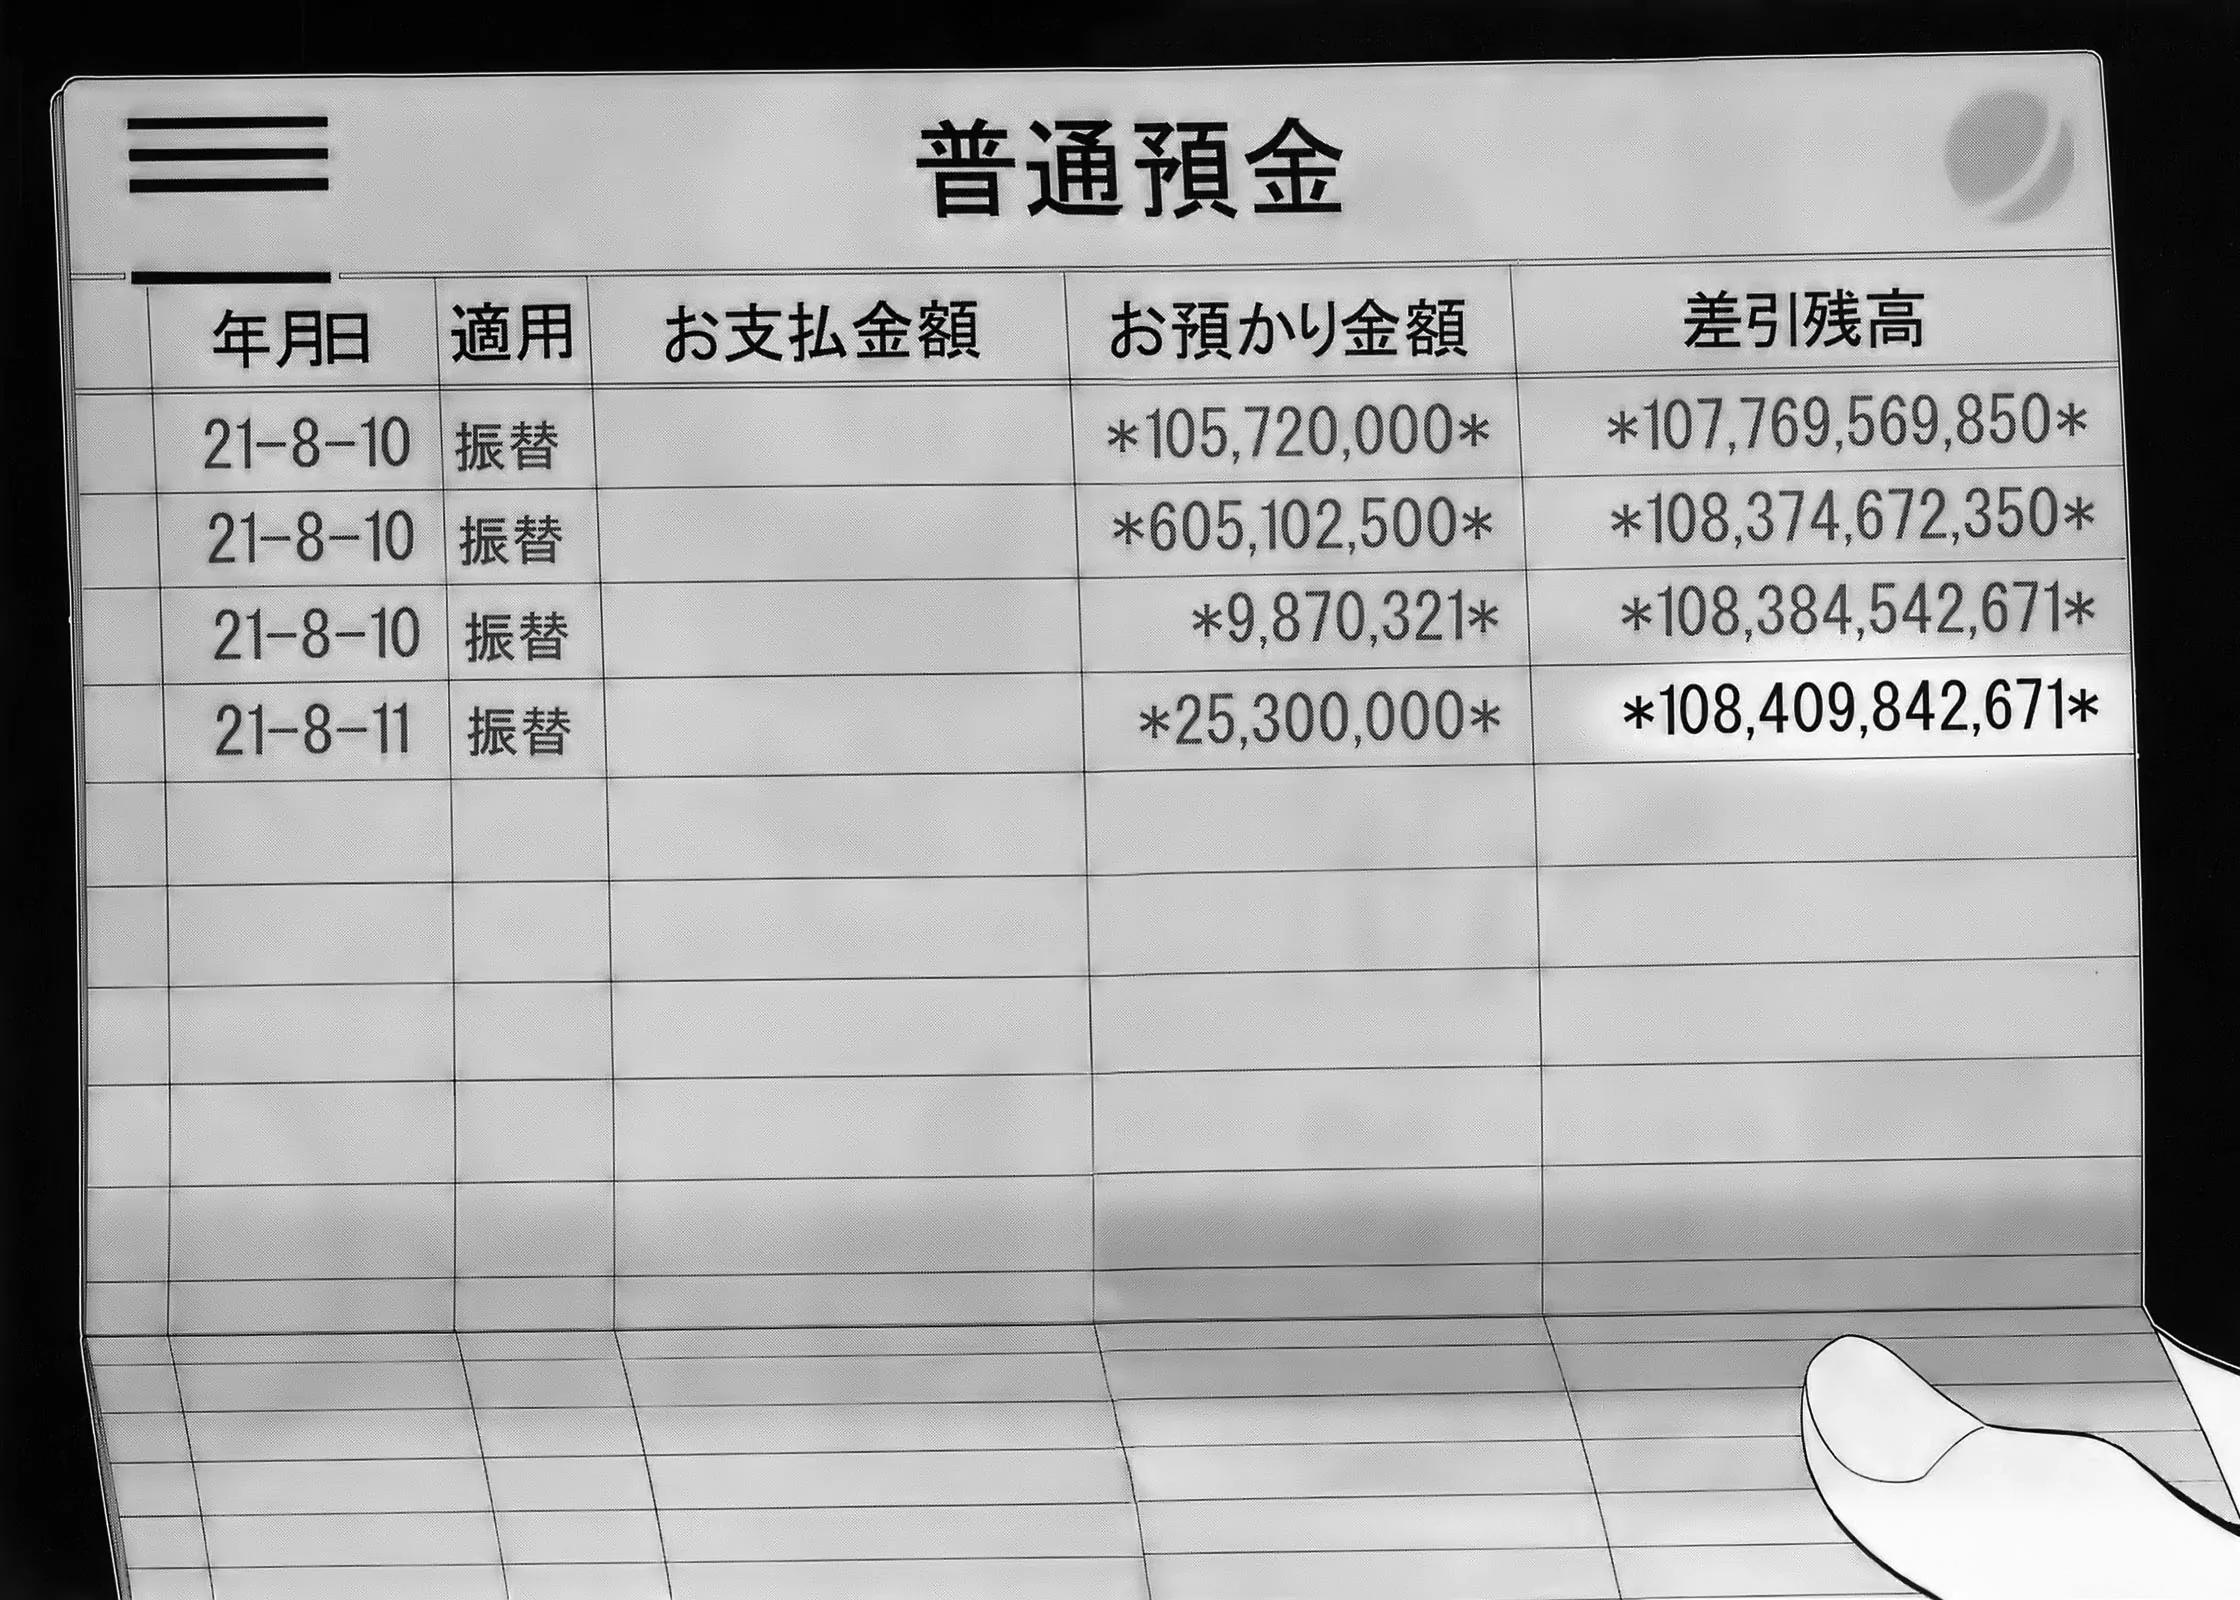 普通預金
年月日 適用 お支払金額 お預かり金額 差引残高
21-8-10 振替 *105,720,000* *107,769,569,850*
21-8-10 振替 *605,102,500* *108,374,672,350*
21-8-10 振替 *9,870,321* *108,384,542,671*
21-8-11 振替 *25,300,000* *108,409,842,671*